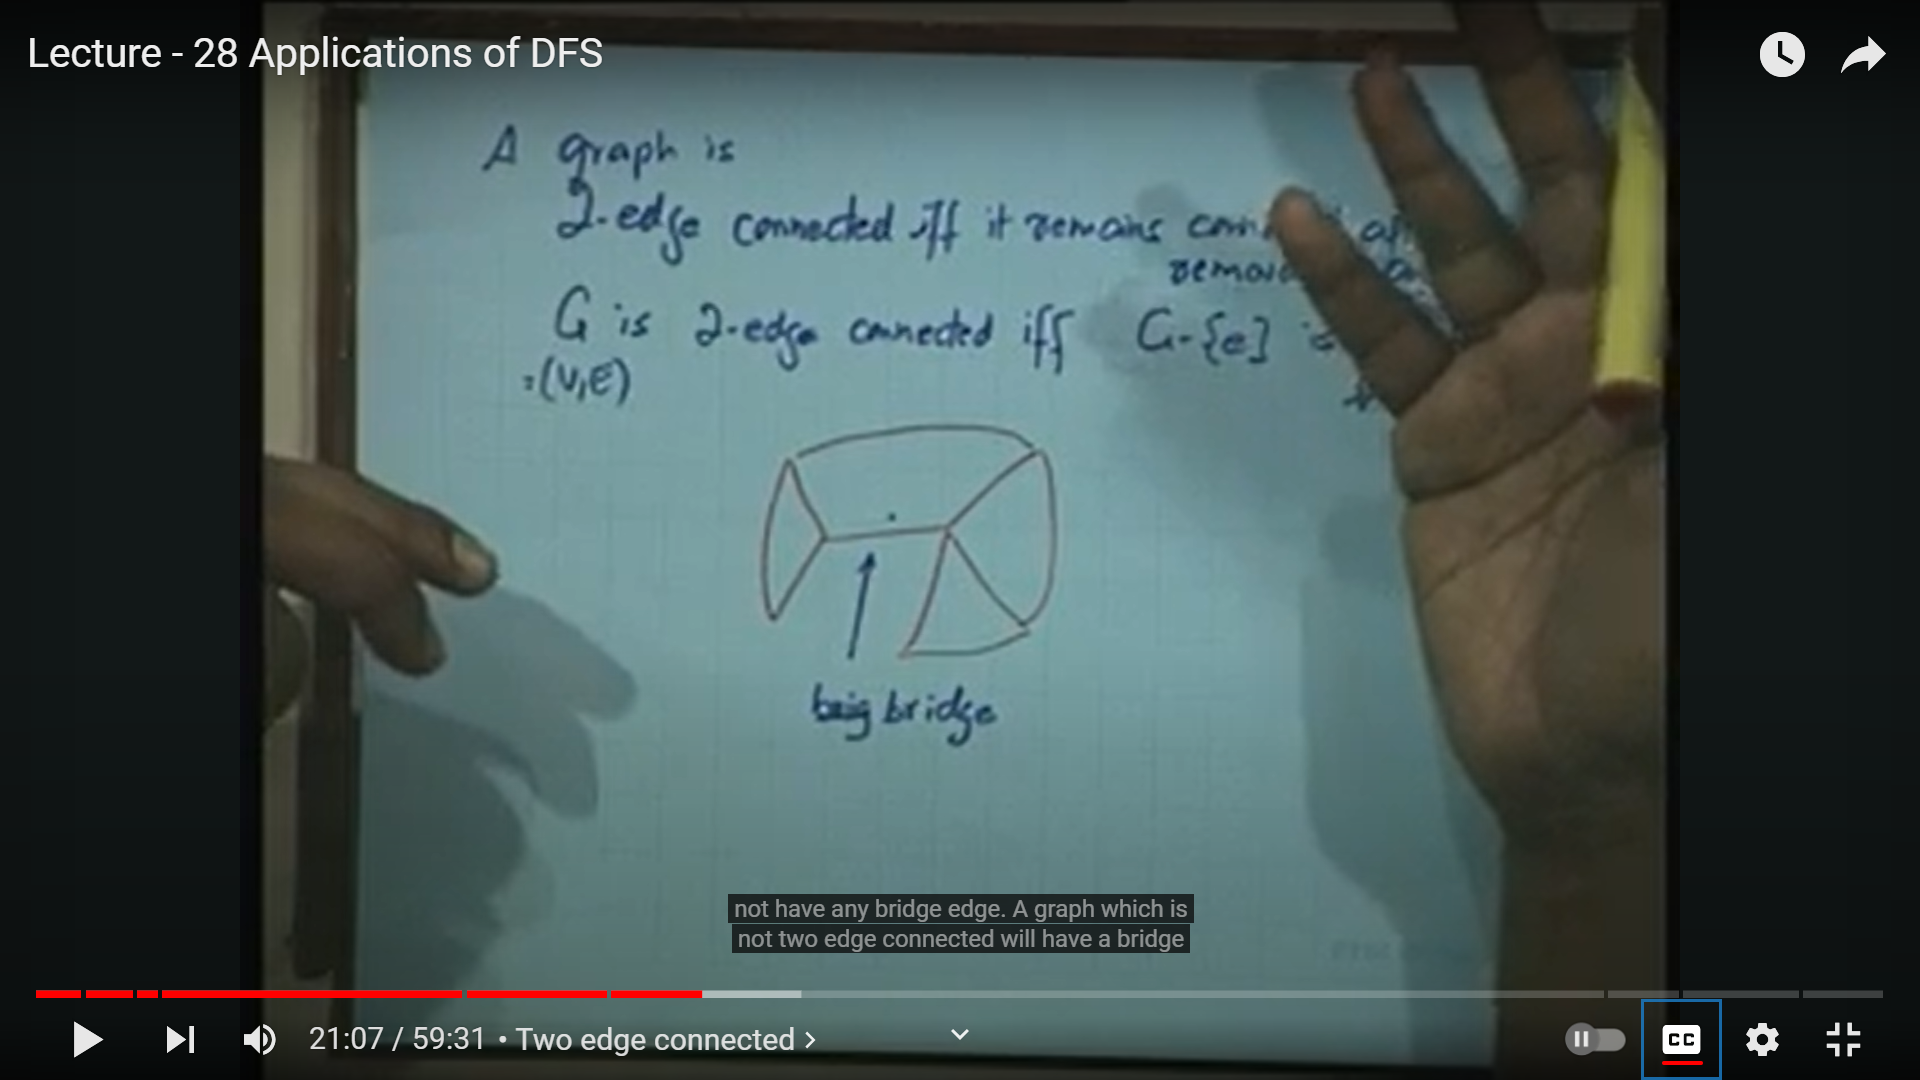 Lecture - 28 Applications of DFS
A graph is
2-edge connected iff it remains
G is 2-edge connected iff G-{e}
=(V,E)
bridge
not have any bridge edge. A graph which is
not two edge connected will have a bridge
21:07 / 59:31 • Two edge connected >
CC